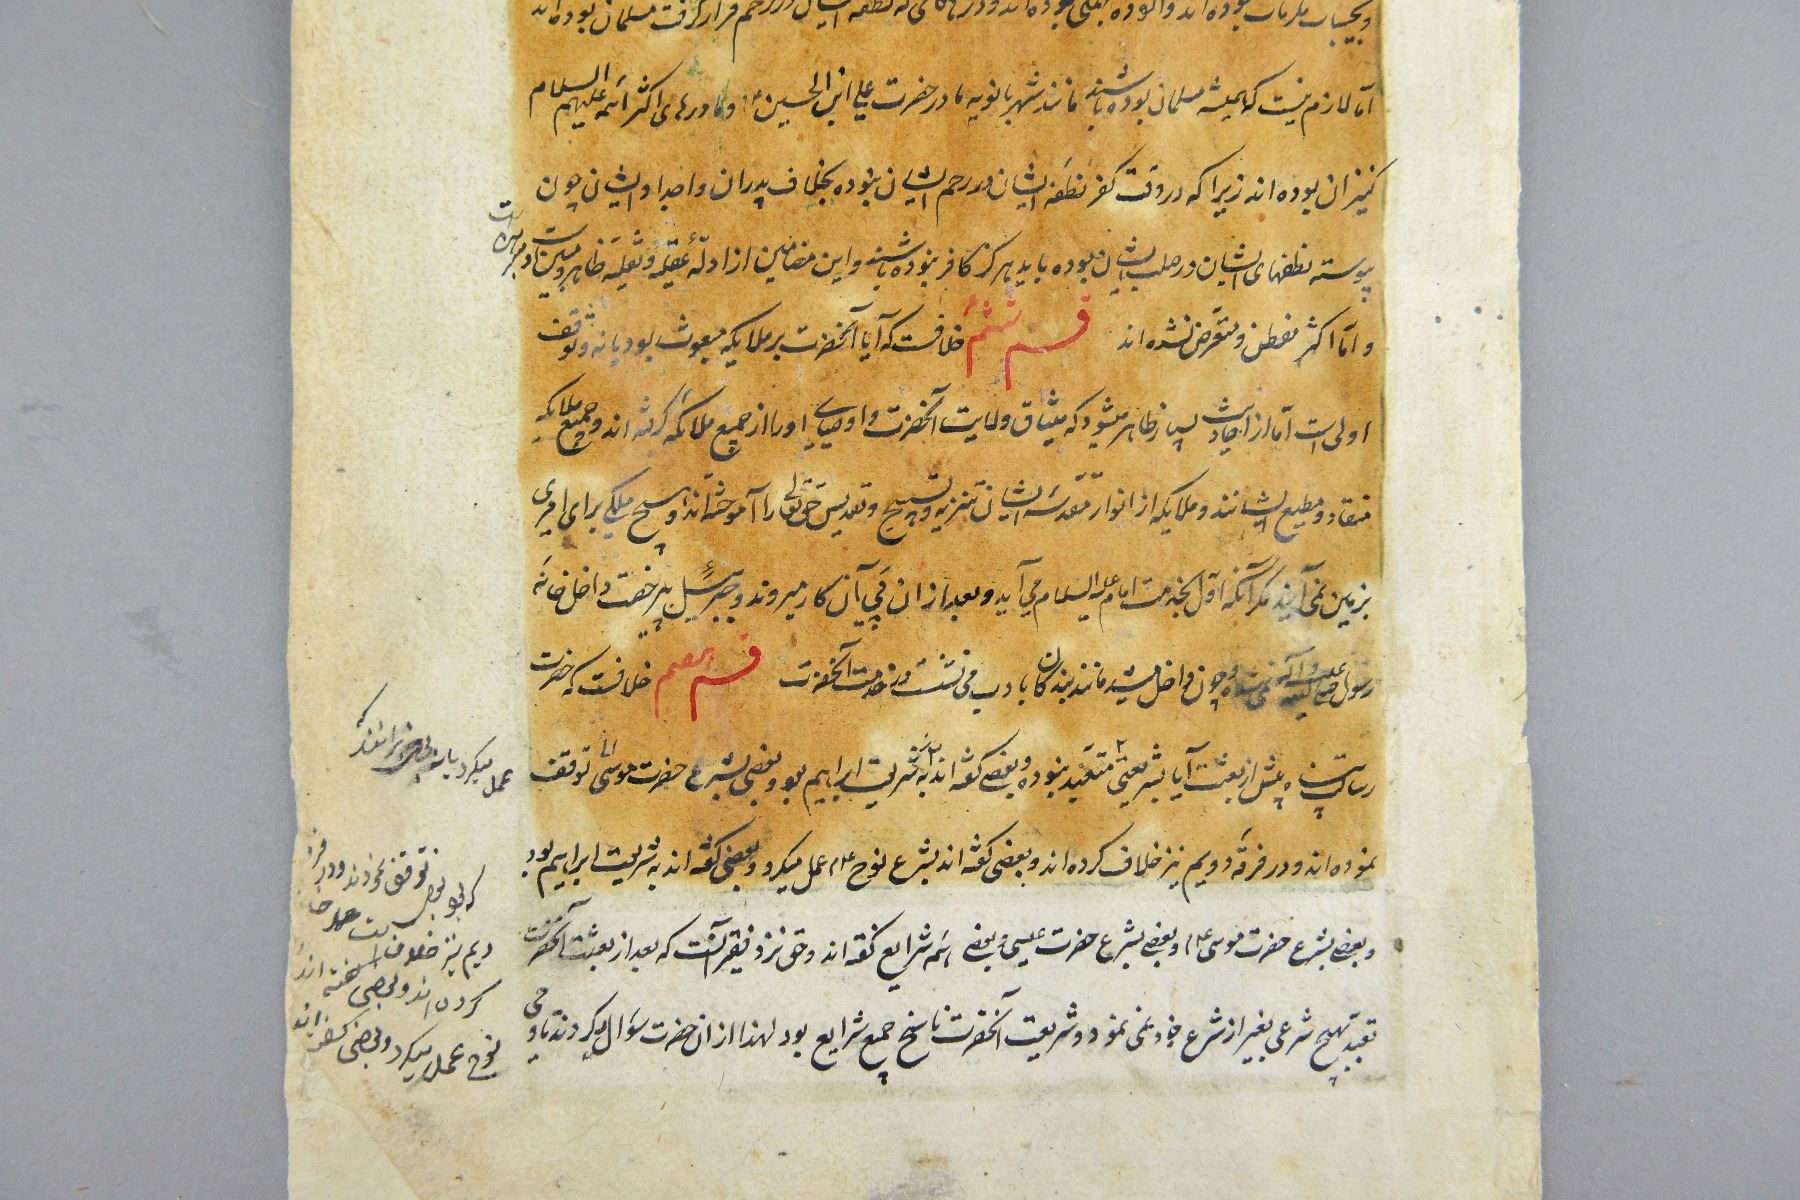 اما لازم نیست که همیشه مسلمان بوده باشند مانند شهربانویه مادر حضرت علی ابن الحسین ع و مادرهای اکثر ائمه علیهم السلام
کنیزان بوده اند زیرا که در وقت کفر نطفه ایشان در رحم ایشان نبوده بخلاف پدران و اجداد ایشان چون
پیوسته نطفهای ایشان در صلب ایشان بوده باید هرگز کافر نبوده باشند و این مضامین از ادلهٔ عقلیه و نقلیه ظاهر و مبین
و اما اکثر متفطن و متعرض نشده اند قسم ششم خلافست که آیا آنحضرت بر ملایکه مبعوث بود یا نه و توقف
اولی است اما از احادیث بسیار ظاهر میشود که میثاق ولایت آنحضرت و اوصیای او را از جمیع ملائکه گرفته اند و جمیع ملایکه
منقاد و مطیع ایشانند و ملایکه از انوار مقدسه ایشان تنزیه و تسبیح و تقدیس حق تعالی را آموخته اند و هیچ ملکی برای امری
بزمین نمی آیند مگر آنکه اول بخدمت امام علیه السلام می آید و بعد از ان پی آن کار میروند و جبرئیل بی رخصت داخل خانه
رسول صلی الله علیه و آله نمی شد و چون داخل میشد مانند بندگان با ادب می نشست در خدمت آنحضرت قسم هفتم خلافست که حضرت
رسالت پناه پیش از بعثت آیا بشریعتی متعبد نبوده و بعضی گفته اند بشریعت ابراهیم بود و بعضی بشرع حضرت موسی توقف
نموده اند و در فرقه دویم نیز خلاف کرده اند و بعضی گفته اند بشرع نوح ع عمل میکرد و بعضی گفته اند به شریعت ابراهیم بود
و بعضی بشرع حضرت موسی ع و بعضی بشرع حضرت عیسی و بعضی شرایع گفته اند و حق نزد فقیر آنست که بعد از بعثت آنحضرت
تعبد بهیچ شرعی بغیر از شرع خود نمی نمود و شریعت آنحضرت ناسخ جمیع شرایع بود لهذا از ان حضرت سؤال میکردند تا وحی
عمل میکرد یا نه
توقف نمودند و در فرقه
دیم نیز خلاف
کرده اند و بعضی گفته اند
نوح عمل میکرد و بعضی گفته اند